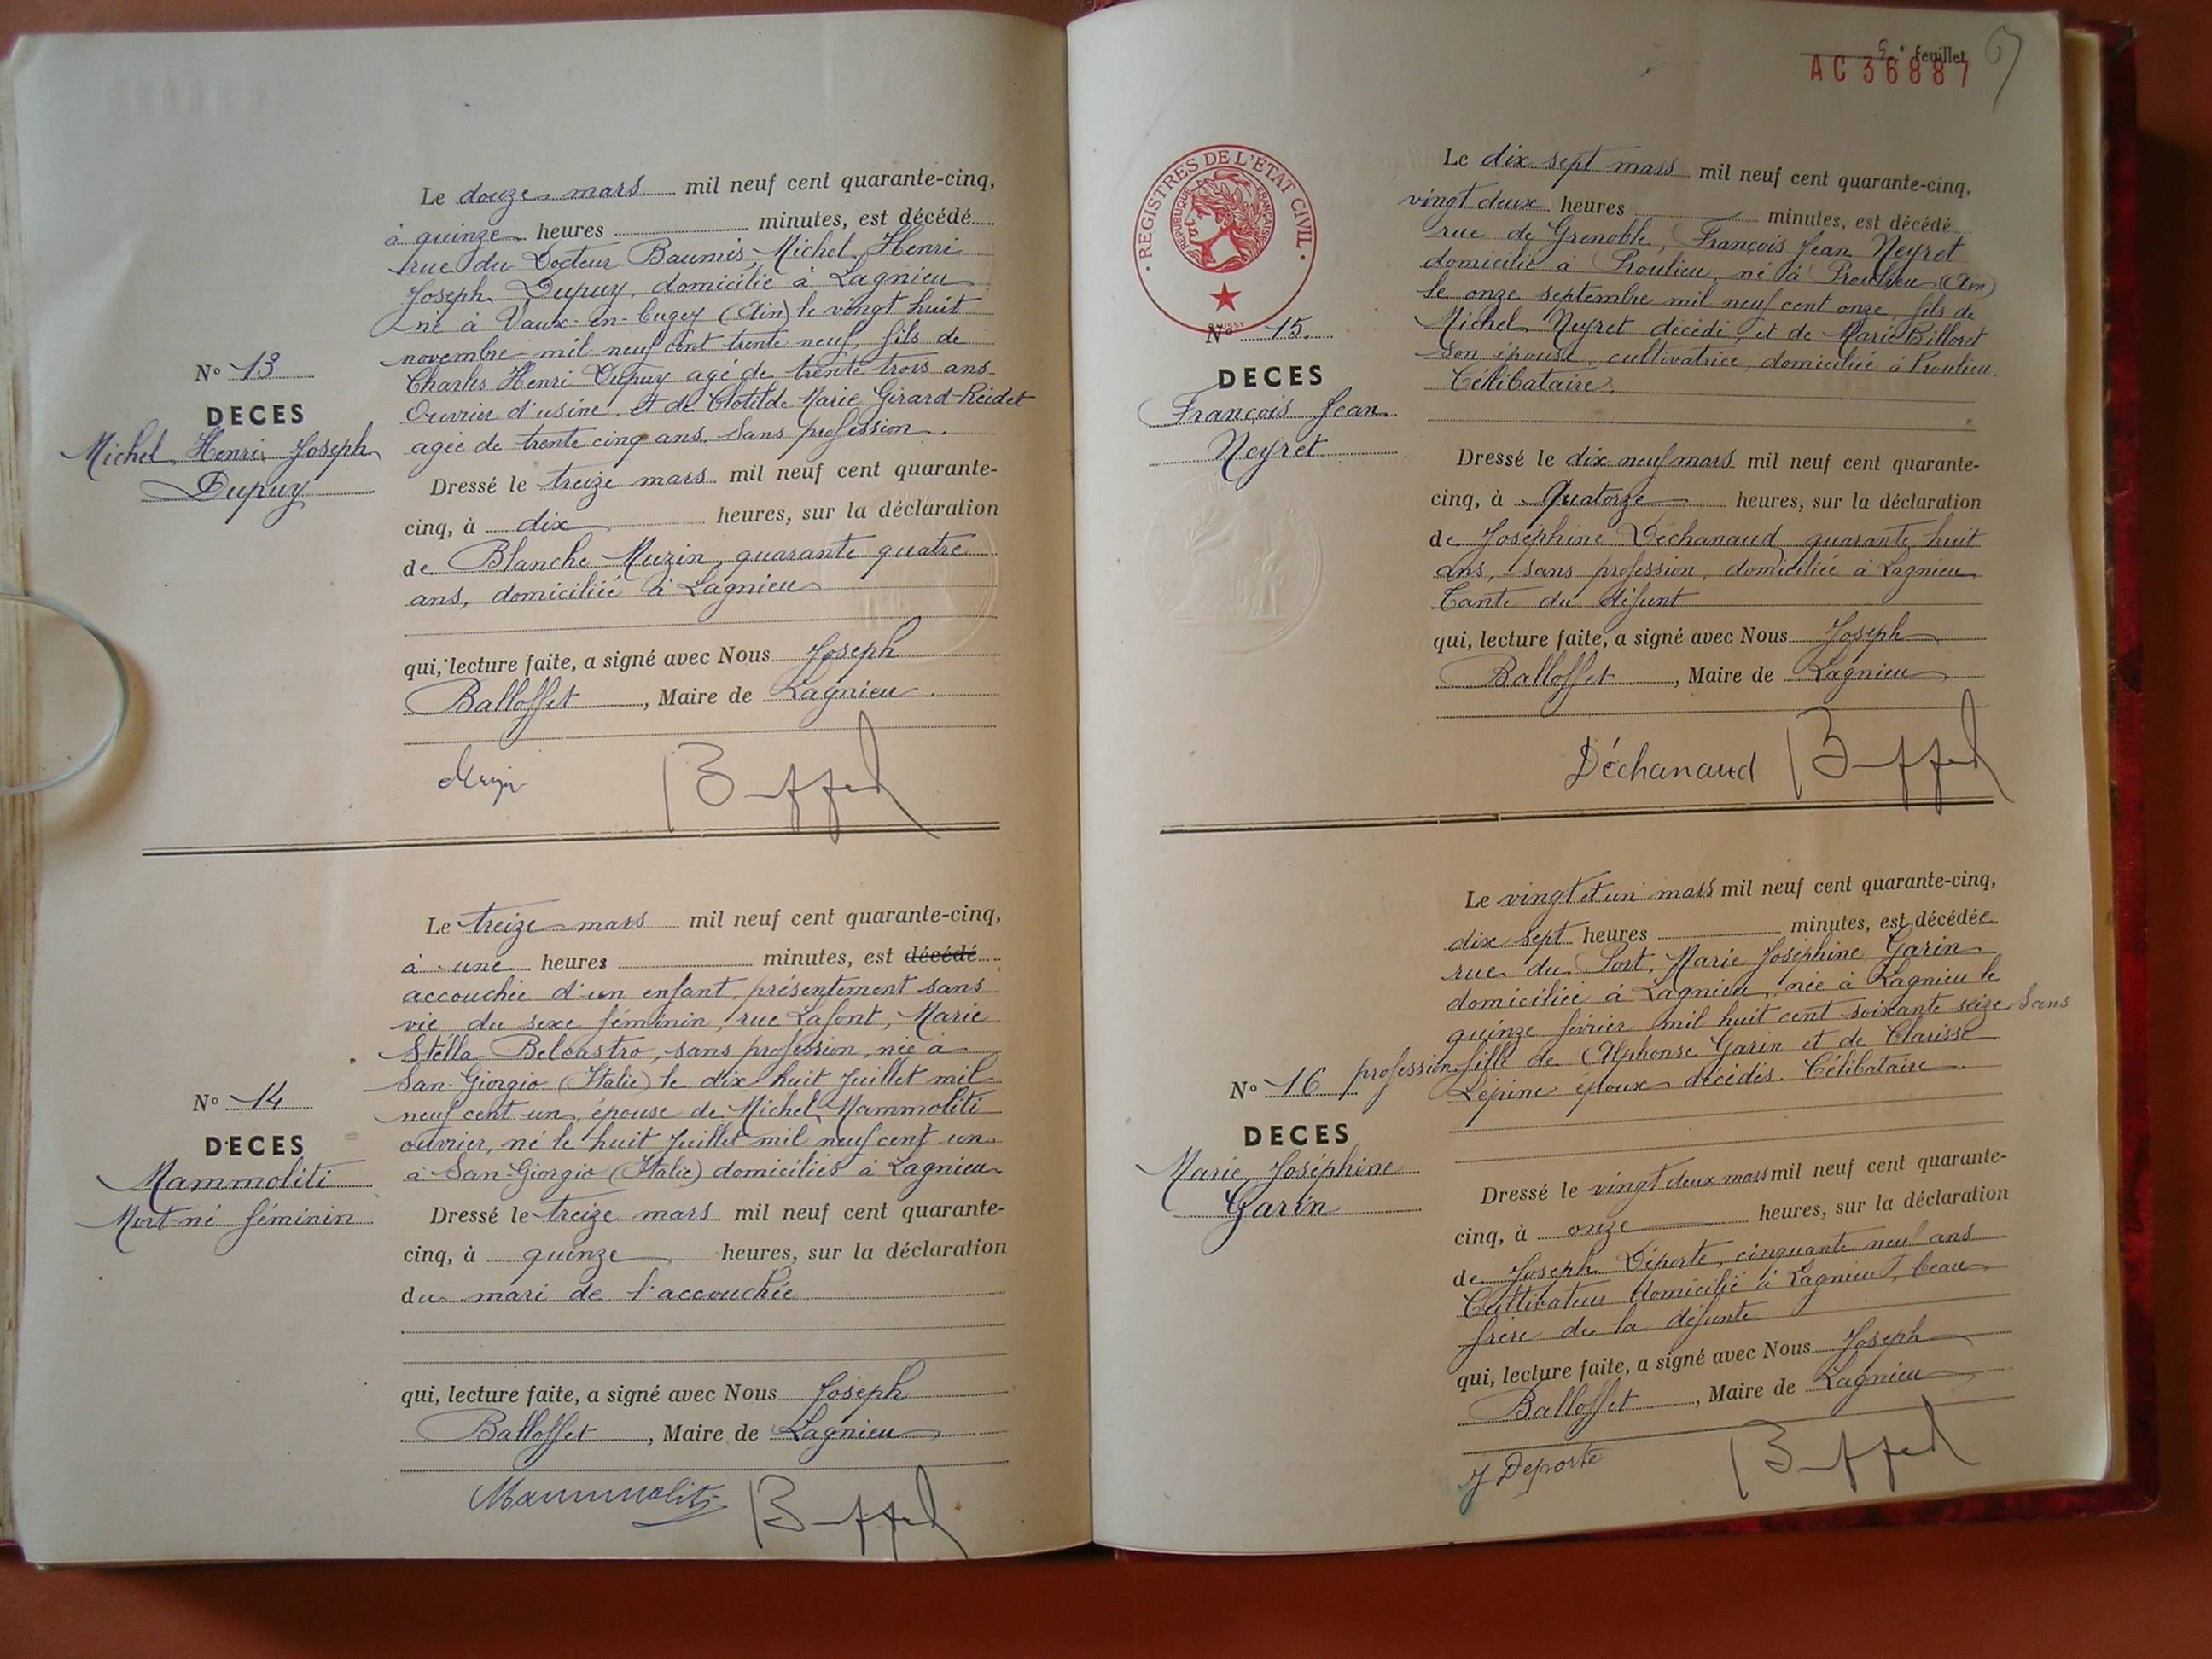 Le douze mars mil neuf cent quarante-cinq,
à quinze heures minutes, est décédé
rue du Docteur Baumès, Michel, Henri
Joseph Dupuy, domicilié à Lagnieu
né à Vaux-en-Bugey (Ain) le vingt huit
novembre mil neuf cent trente neuf, fils de
Charles Henri Dupuy agé de trente trois ans
Ouvrier d'usine, et de Clotilde Marie Girard-Reidet
agée de trente cinq ans. Sans profession.
N° 13
DECES
Michel, Henri, Joseph
Dupuy
Dressé le treize mars mil neuf cent quarante-
cinq, à dix heures, sur la déclaration
de Blanche Muzin, quarante quatre
ans, domiciliée à Lagnieu
qui, lecture faite, a signé avec Nous Joseph
Balloffet, Maire de Lagnieu.
Muzin
Le treize mars mil neuf cent quarante-cinq,
à une heures minutes, est décédé
accouchée d'un enfant, présentement sans
vie du sexe féminin, rue Lafont, Marie
Stella Belcastro, sans profession, née à
San-Giorgio (Italie) le dix huit Juillet mil
neuf cent un, épouse de Michel Mammoliti
ouvrier, né le huit Juillet mil neuf cent un
à San-Giorgio (Italie) domiciliés à Lagnieu.
N° 14
DECES
Mammoliti
Mort-né féminin
Dressé le treize mars mil neuf cent quarante-
cinq, à quinze heures, sur la déclaration
du mari de l'accouchée
qui, lecture faite, a signé avec Nous Joseph
Balloffet, Maire de Lagnieu
Mammoliti
5e feuillet
AC 36887
REGISTRES DE L'ETAT CIVIL
REPUBLIQUE FRANÇAISE
Le dix sept mars mil neuf cent quarante-cinq,
vingt deux heures minutes, est décédé
rue de Grenoble, François Jean Neyret
domicilié à Proulieu, né à Proulieu (Ain)
le onze septembre mil neuf cent onze, fils de
Michel Neyret décédé, et de Marie Billoret
son épouse, cultivatrice, domiciliée à Proulieu.
Célibataire.
N° 15.
DECES
François Jean
Neyret
Dressé le dix neuf mars mil neuf cent quarante-
cinq, à Quatorze heures, sur la déclaration
de Joséphine Déchanaud, quarante huit
ans, sans profession, domiciliée à Lagnieu
Tante du défunt
qui, lecture faite, a signé avec Nous Joseph
Balloffet, Maire de Lagnieu
Déchanaud
Le vingt et un mars mil neuf cent quarante-cinq,
dix sept heures minutes, est décédée
rue du Port, Marie Joséphine Garin
domiciliée à Lagnieu, née à Lagnieu le
quinze février mil huit cent soixante seize Sans
profession, fille de Alphonse Garin et de Clarisse
Lépine époux décédés. Célibataire.
N° 16
DECES
Marie Joséphine
Garin
Dressé le vingt deux mars mil neuf cent quarante-
cinq, à onze heures, sur la déclaration
de Joseph Déporte, cinquante neuf ans
Cultivateur domicilié à Lagnieu, beau
frère de la défunte
qui, lecture faite, a signé avec Nous Joseph
Balloffet, Maire de Lagnieu
J Deporte